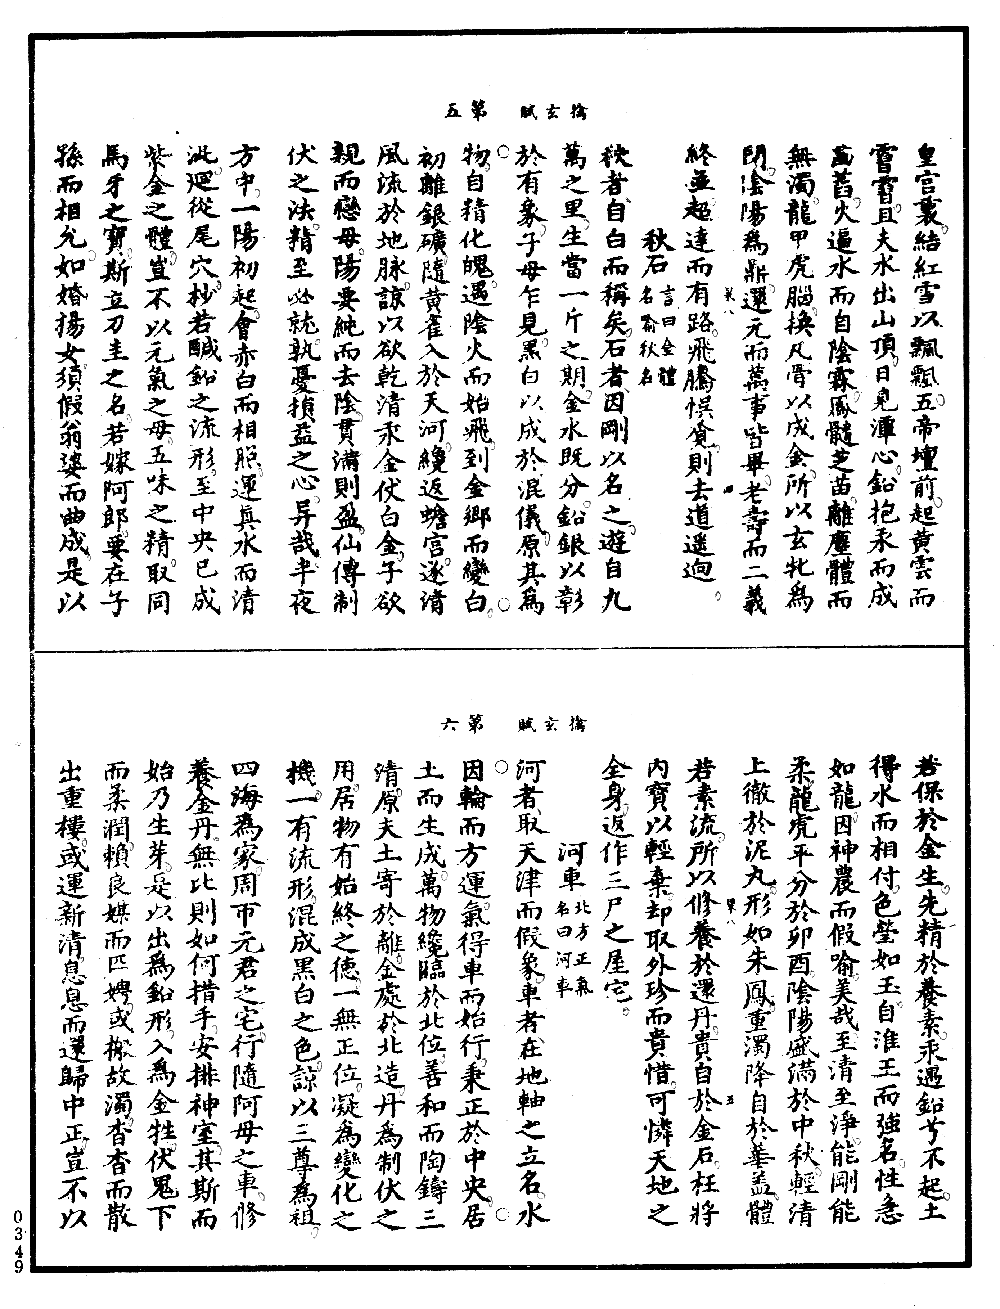 擒玄賦　第五
皇宮裏結紅雪以飄飄五帝壇前起黃雲而
霅霅且夫水出山頂日見潭心鉛抱汞而成
火逼水而自陰霖鳳髓芝苗離塵體而
無濁龍甲虎腦換凡骨以成金所以玄牝為
門陰陽為鼎還元而萬事皆畢老壽而二義
終並超達而有路飛騰悞覓則去道遥逈
秋石言曰金體名喻秋名
秋者自白而稱矣石者因剛以名之遊自九
萬之里生當一斤之期金水既分鉛銀以彰
於有象子母乍見黑白以成於混儀原其為
物自精化魄遇陰火而始飛到金鄉而變白
初離銀礦隨黃雀入於天河纔返蟾宮逐清
風流於地脉諒以欲乾清汞金伏白金子欲
親而戀母陽要純而去陰貫滿則盈仙傳制
伏之法精至必就孰憂損益之心异哉半夜
方中一陽初起會赤白而相照運真水而清
泚迴從尾穴杪若醎鉛之流形至中央已成
紫金之體豈不以元氣之母五味之精取同
馬牙之寶斯立刀圭之名若嫁阿郎要在子
孫而相允如婚揚女須假翁婆而曲成是以
擒玄賦　第六
若保於金生先精於養素汞遇鉛兮不起土
得水而相付色瑩如玉自淮王而強名性急
如龍因神農而假喻美哉至清至淨能剛能
柔龍虎平分於卯酉陰陽盛滿於中秋輕清
上徹於泥丸形如朱鳳重濁降自於華蓋體
若素流所以修養於還丹貴自於金石枉將
内寶以輕棄却取外珍而貴惜可憐天地之
全身返作三尸之屋宅
河車北方正氣名曰河車
河者取天津而假象車者在地軸之立名水
因輪而方運氣得車而始行秉正於中央居
土而生成萬物纔臨於北位善和而陶鑄三
清原夫土寄於離金處於北造丹為制伏之
用居物有始終之德一無正位凝為變化之
機一有流形混成黑白之色諒以三尊為祖
四海為家周帀元君之宅行隨阿母之車修
養金丹無比則如何措手安排神室其斯而
始乃生芽是以出為鉛形入為金牲伏鬼下
而柔潤賴良媒而匹娉或搬故濁杳杳而散
出重樓或運新清息息而還歸中正豈不以
0349